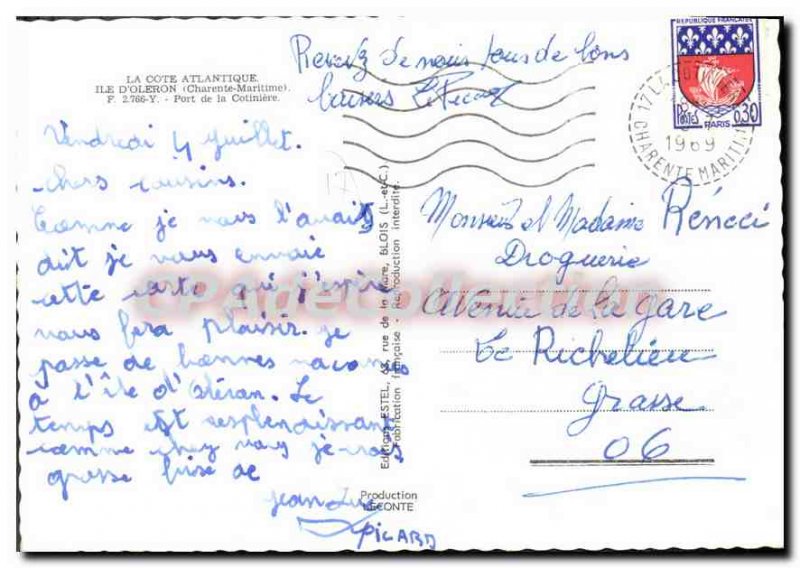 LA COTE ATLANTIQUE
ILE D'OLERON (Charente-Maritime)
F. 2.766-Y. - Port de la Cotinière.
Vendredi 4 Juillet.
chers cousins.
Comme je vous l'avait
dit je vous envoie
cette carte qui j'espère
vous fera plaisir. je
passe de bonnes vacances
à l'île d'Oléron. Le
temps est resplendissant
comme chez vous je vous
grosse bise de
Jean Luc
PICARD
de nous tous de bons
baisers
Editions ESTEL, 63, rue de la Mare, BLOIS (L.-et-C.)
Fabrication française - Reproduction interdite.
Production
LECONTE
REPUBLIQUE FRANÇAISE
POSTES
PARIS
0,30
17 LA
1969
CHARENTE MARITIME
Monsieur et Madame
Droguerie
Avenue de la gare
Le Richelieu
Grasse
06
CPAdeCollection